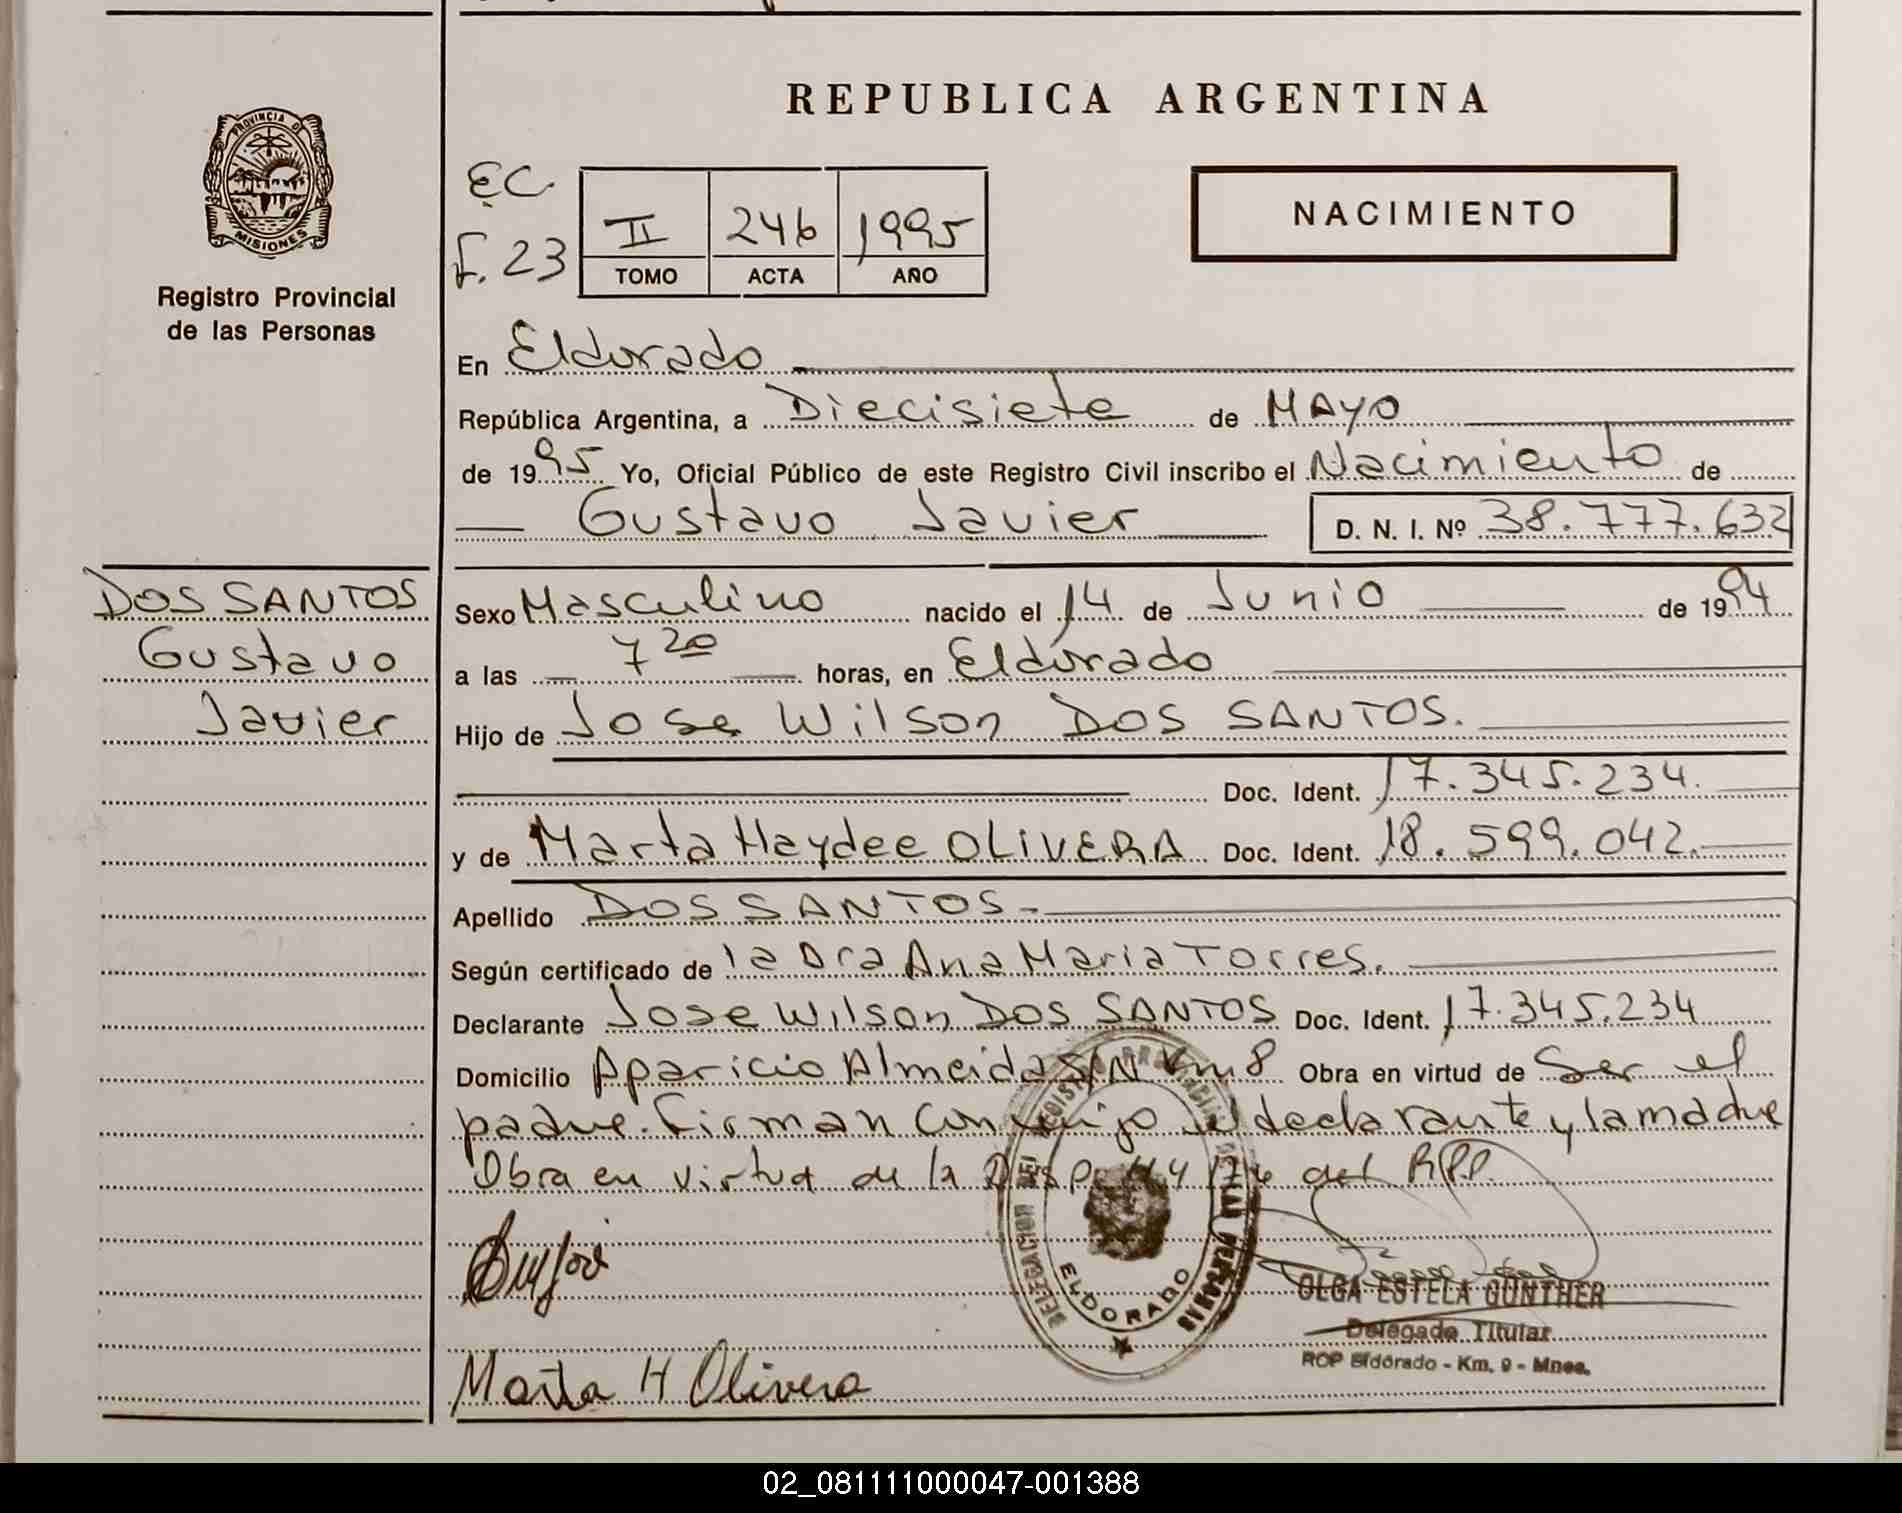 REPUBLICA ARGENTINA
PROVINCIA DE
MISIONES
Registro Provincial
de las Personas
EC
F. 23
II 246 1995
TOMO ACTA AÑO
NACIMIENTO
En Eldorado
República Argentina, a Diecisiete de MAYO
de 1995 Yo, Oficial Público de este Registro Civil inscribo el Nacimiento de
Gustavo Javier D. N. I. Nº 38.777.632
DOS SANTOS
Gustavo
Javier
Sexo Masculino nacido el 14 de Junio de 1994
a las 7 20 horas, en Eldorado
Hijo de Jose Wilson DOS SANTOS.
Doc. Ident. 17.345.234.
y de Marta Haydee OLIVERA Doc. Ident. 18.599.042.
Apellido DOS SANTOS-
Según certificado de la Dra Ana Maria Torres.
Declarante Jose Wilson DOS SANTOS Doc. Ident. 17.345.234
Domicilio Aparicio Almeida S/N Km 8 Obra en virtud de Ser el
padre. Firman conmigo el declarante y la madre
Obra en virtud de la Disp. 44/76 del RPP.
ELDORADO
OLGA ESTELA GUNTHER
Delegado Titular
RCP Eldorado - Km. 9 - Mnes.
Marta H Olivera
02_081111000047-001388